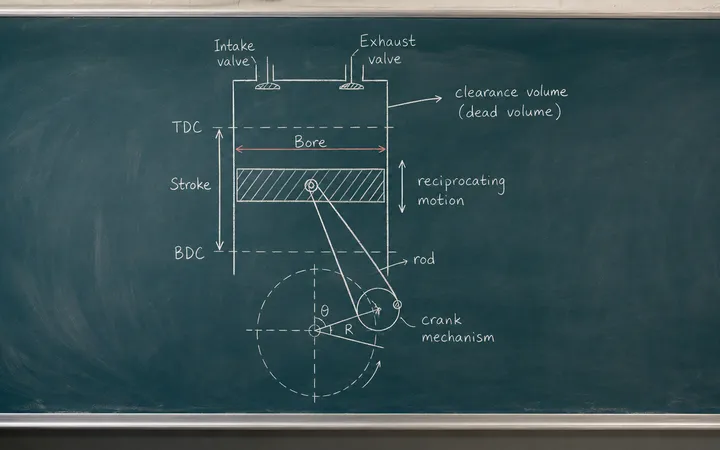 Intake
valve
Exhaust
valve
clearance volume
(dead volume)
TDC
Bore
Stroke
reciprocating
motion
BDC
rod
θ
R
crank
mechanism